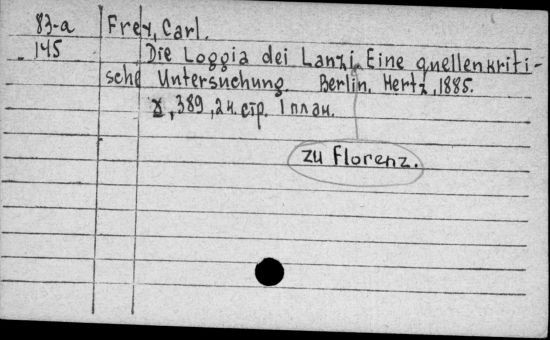 83-a
145
Frey, Carl.
Die Loggia dei Lanzi. Eine quellenkriti-
sche Untersuchung. Berlin, Hertz, 1885.
X, 389, 2 н. стр. 1 план.
zu Florenz.